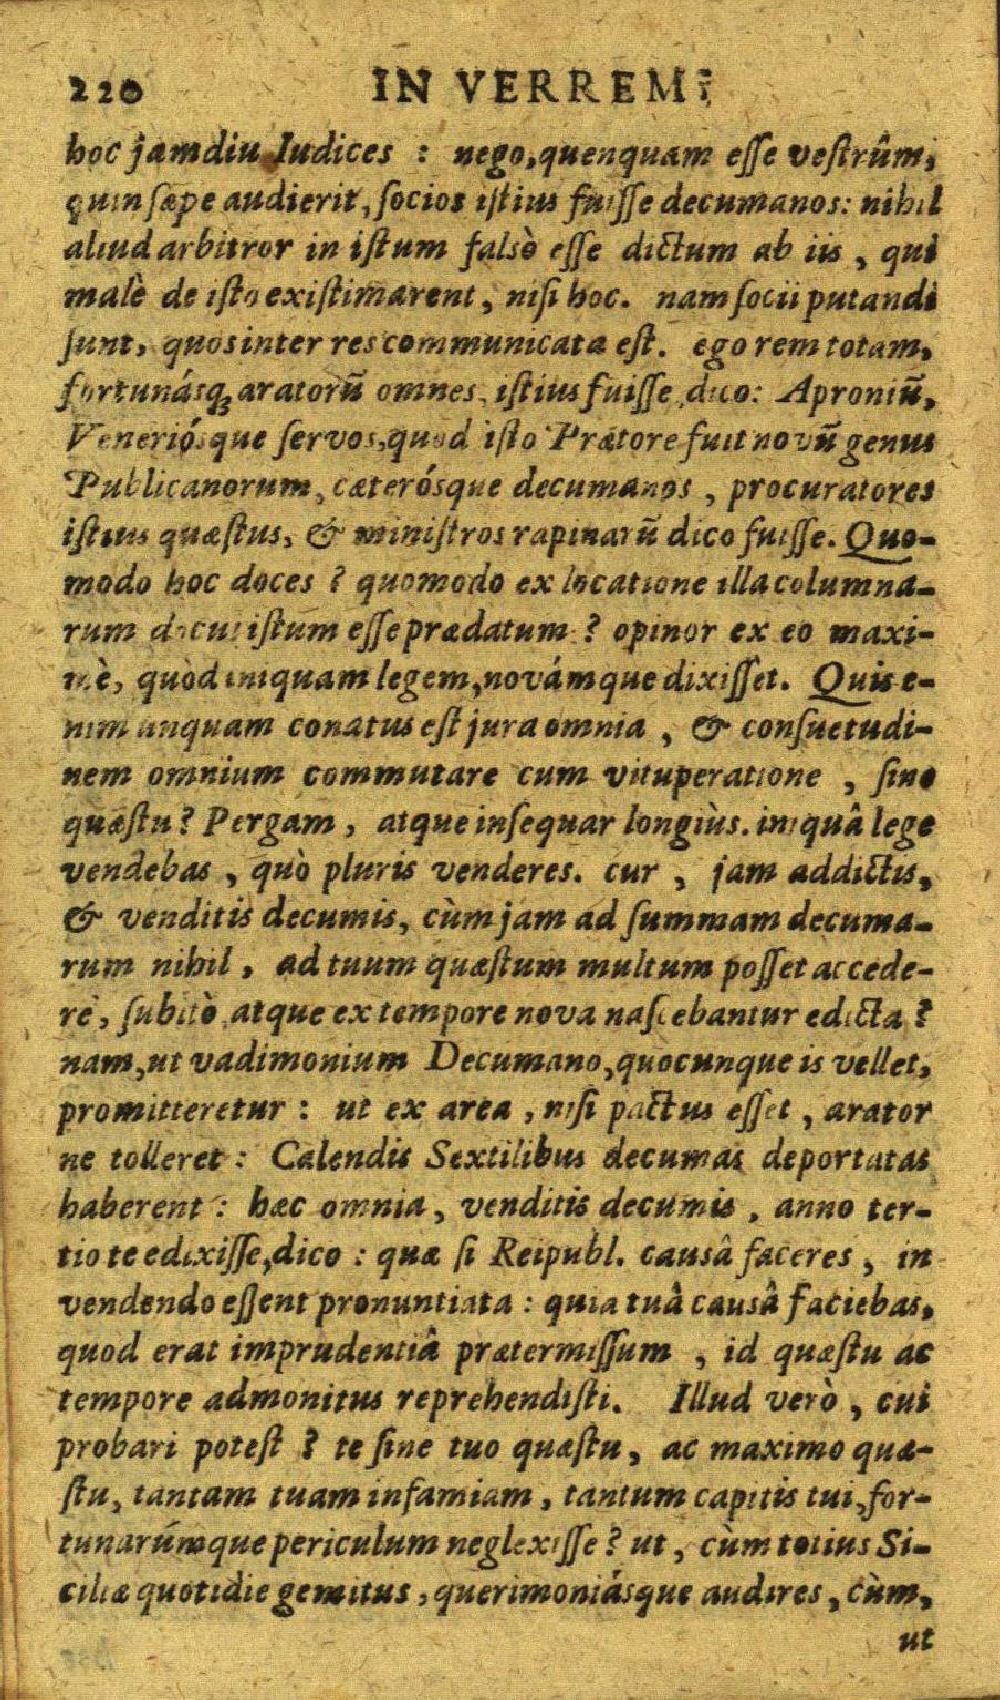 220 IN VERREM:
hoc jamdiu Iudices : nego, quenquam eſſe veſtrûm,
quin ſæpe audierit, ſocios iſtius fuiſſe decumanos: nihil
aliud arbitror in iſtum falsò eſſe dictum ab iis , qui
malè de iſto exiſtimarent, niſi hoc. nam ſocii putandi
ſunt, quos inter res communicata eſt. ego rem totam,
fortunásq; aratorū omnes iſtius fuiſſe dico: Aproniū,
Veneriósque ſervos, quod iſto Prætore fuit novū genus
Publicanorum, cæterósque decumanos , procuratores
iſtius quæſtus, & miniſtros rapinarū dico fuiſſe. Quo-
modo hoc doces ? quomodo ex locatione illa columna-
rum docui iſtum eſſe prædatum ? opinor ex eo maxi-
mè, quòd iniquam legem, novámque dixiſſet. Quis e-
nim unquam conatus eſt jura omnia , & conſuetudi-
nem omnium commutare cum vituperatione , ſine
quæſtu? Pergam, atque inſequar longiùs. iniquâ lege
vendebas , quò pluris venderes. cur , jam addictis,
& venditis decumis, cùm jam ad ſummam decuma-
rum nihil , ad tuum quæſtum multum poſſet accede-
re, ſubitò atque ex tempore nova naſcebantur edicta ?
nam, ut vadimonium Decumano, quocunque is vellet,
promitteretur : ut ex area , niſi pactus eſſet , arator
ne tolleret : Calendis Sextilibus decumas deportatas
haberent : hæc omnia, venditis decumis , anno ter-
tio te edixiſſe, dico : quæ ſi Reipubl. causâ faceres , in
vendendo eſſent pronuntiata : quia tuâ causâ faciebas,
quod erat imprudentiâ prætermiſſum , id quæſtu ac
tempore admonitus reprehendiſti. Illud verò , cui
probari poteſt ? te ſine tuo quæſtu, ac maximo quæ-
ſtu, tantam tuam infamiam , tantum capitis tui, for-
tunarúmque periculum neglexiſſe ? ut , cùm totius Si-
ciliæ quotidie gemitus , querimoniásque audires , cùm,
ut